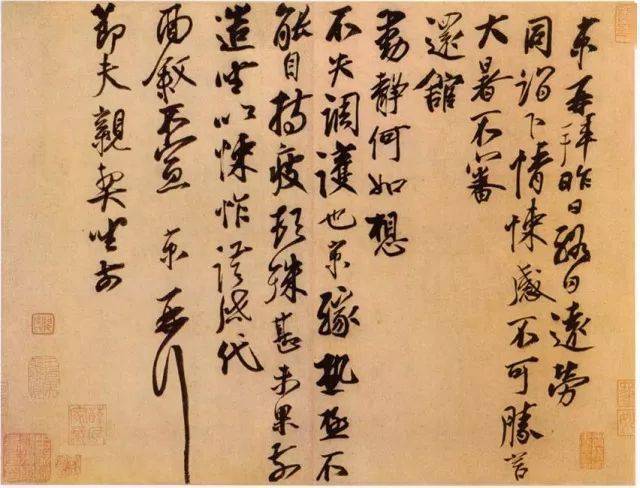 京再拜昨日終日遠勞
同詣下情悚感不可勝言
大暑不審
還館
動靜何如想
不失調護也京緣熱極不
能自持疲頓殊甚未果前
造坐次悚怍謹啟代
面敘不宣 京再拜
節夫親契坐前